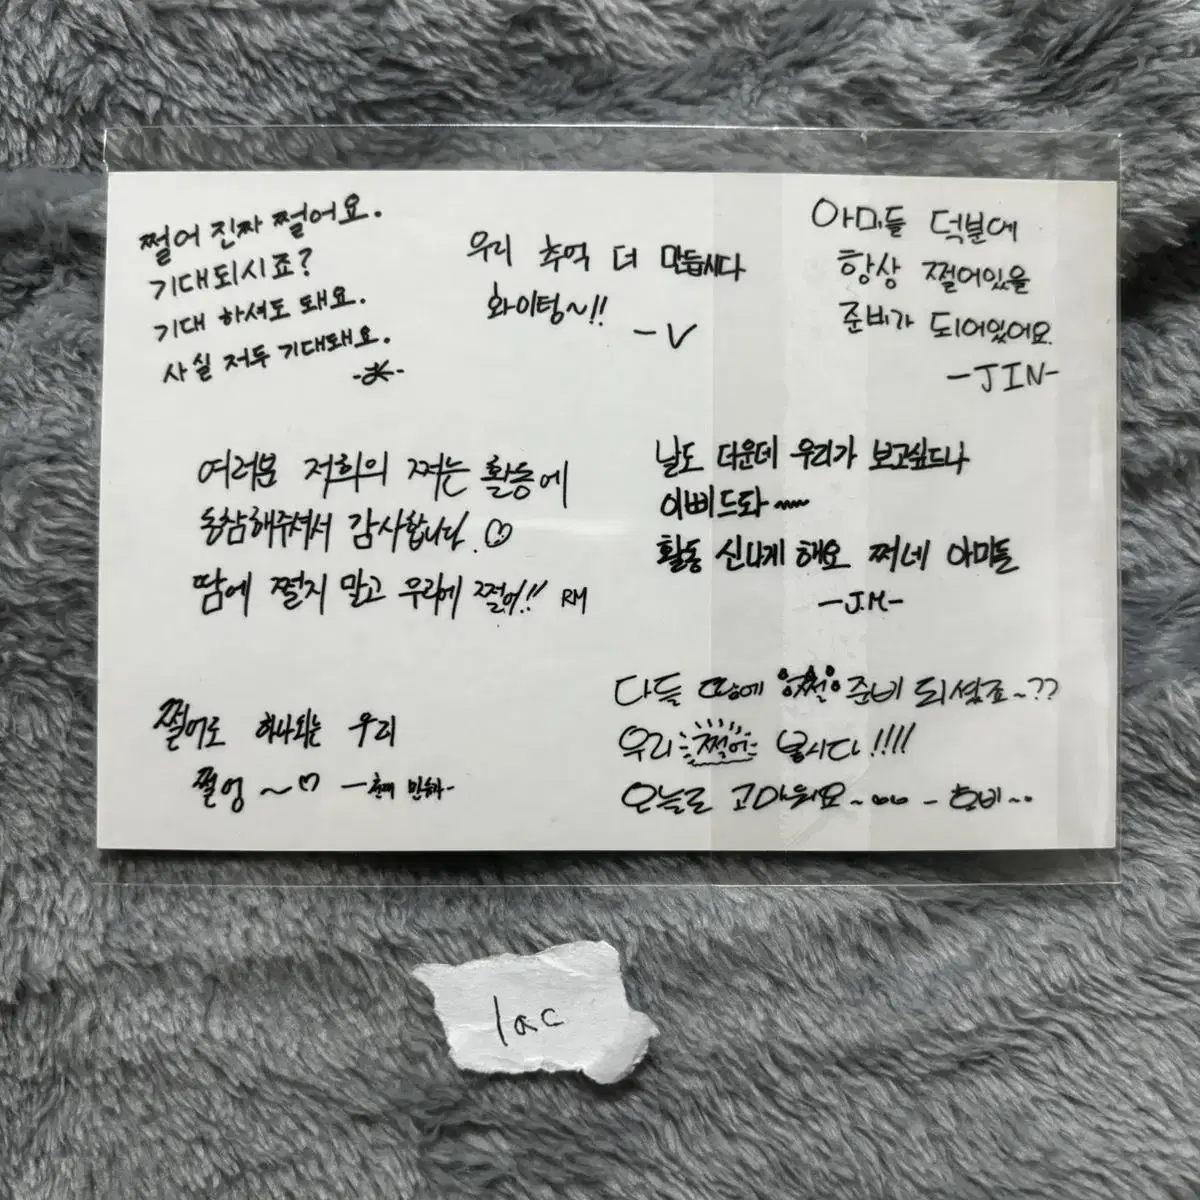 쩔어 진짜 쩔어요.
기대되시죠?
기대 하셔도 돼요.
사실 저두 기대돼요.
우리 추억 더 만듭시다
화이팅~!!
-V
아미들 덕분에
항상 쩔어있을
준비가 되어있어요.
-JIN-
여러분 저희의 쩌는 활동에
동참해주셔서 감사합니다.
땀에 쩔지 말고 우리에 쩔어!! RM
날도 더운데 우리가 보고싶드나
이삐드롸~~
활동 신나게 해요 쩌네 아미들
-J.M-
쩔어로 하나되는 우리
쩔엉~♡
다들 땀에 쩔 준비 되셨죠~??
우리 쩔어 봅시다!!!!
오늘도 고마워요~ - 호비~
lac